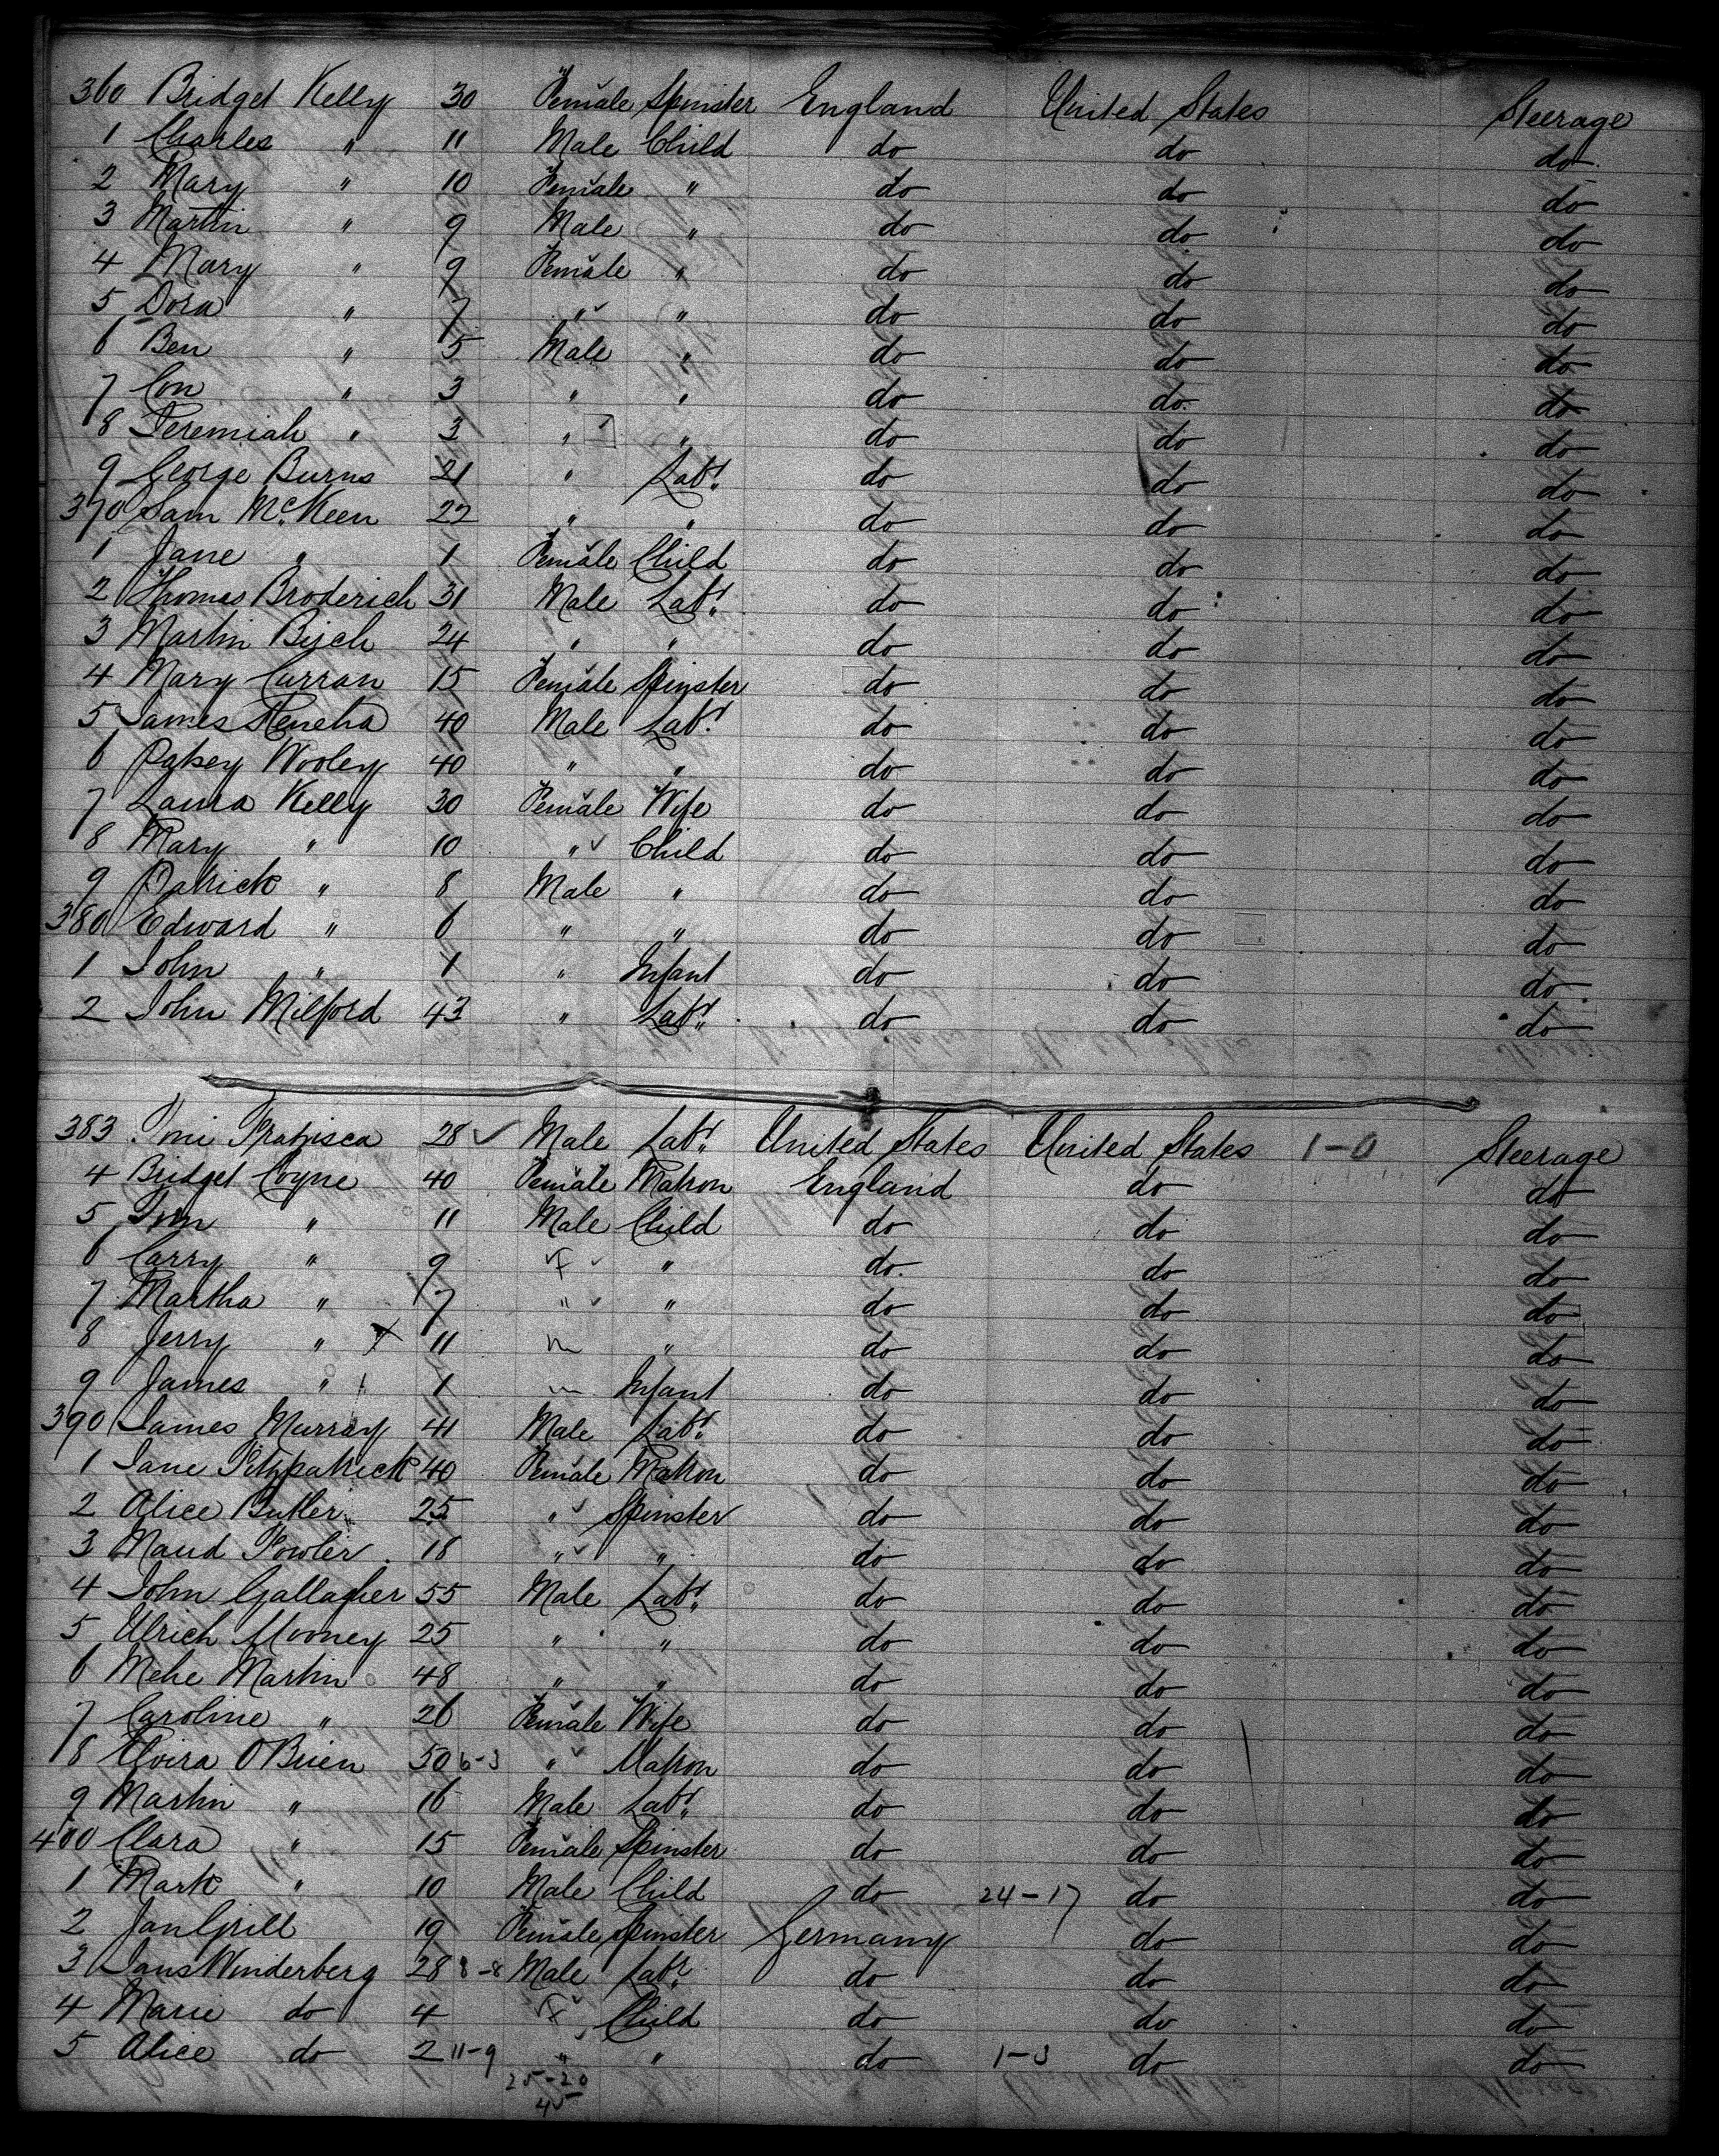 360 Bridget Kelly 30 Female Spinster England United States Steerage
1 Charles " 11 Male Child do do do
2 Mary " 10 Female " do do do
3 Martin " 9 Male " do do do
4 Mary " 9 Female " do do do
5 Dora " 7 " " do do do
6 Ben " 5 Male " do do do
7 Con " 3 " " do do do
8 Jeremiah " 3 " " do do do
9 George Burns 21 " Labr. do do do
370 Sam McKeen 22 " " do do do
1 Jane " 1 Female Child do do do
2 Thomas Broderich 31 Male Labr. do do do
3 Martin 24 " " do do do
4 Mary Curran 15 Female Spinster do do do
5 James 40 Male Labr. do do do
6 Patsey Wooley 40 " " do do do
7 Laura Kelly 30 Female Wife do do do
8 Mary " 10 " Child do do do
9 Patrick " 8 Male " do do do
380 Edward " 6 " " do do do
1 John " 1 " Infant do do do
2 John Milford 43 " Labr. do do do
383 28 Male Labr. United States United States 1-0 Steerage
4 Bridget Coyne 40 Female Matron England do do
5 Tom " 11 Male Child do do do
6 Carry " 9 F " do do do
7 Martha " 7 " " do do do
8 Jerry " x 11 m " do do do
9 James " 1 m Infant do do do
390 James Murray 41 Male Labr. do do do
1 Jane Fitzpatrick 40 Female Matron do do do
2 Alice Butler 25 " Spinster do do do
3 Maud Fowler 18 " " do do do
4 John Gallagher 55 Male Labr. do do do
5 Ulrich Mooney 25 " " do do do
6 Mehe Martin 48 " " do do do
7 Caroline " 26 Female Wife do do do
8 Elvira OBrien 50 6-3 " Matron do do do
9 Martin " 16 Male Labr. do do do
400 Clara " 15 Female Spinster do do do
1 Mark " 10 Male Child do 24-17 do do
2 Jan Grill 19 Female Spinster Germany do do
3 Jans Winderberg 28 8-8 Male Labr. do do do
4 Marie do 4 F Child do do do
5 Alice do 2 11-9 " " do 1-3 do do
25-20
45